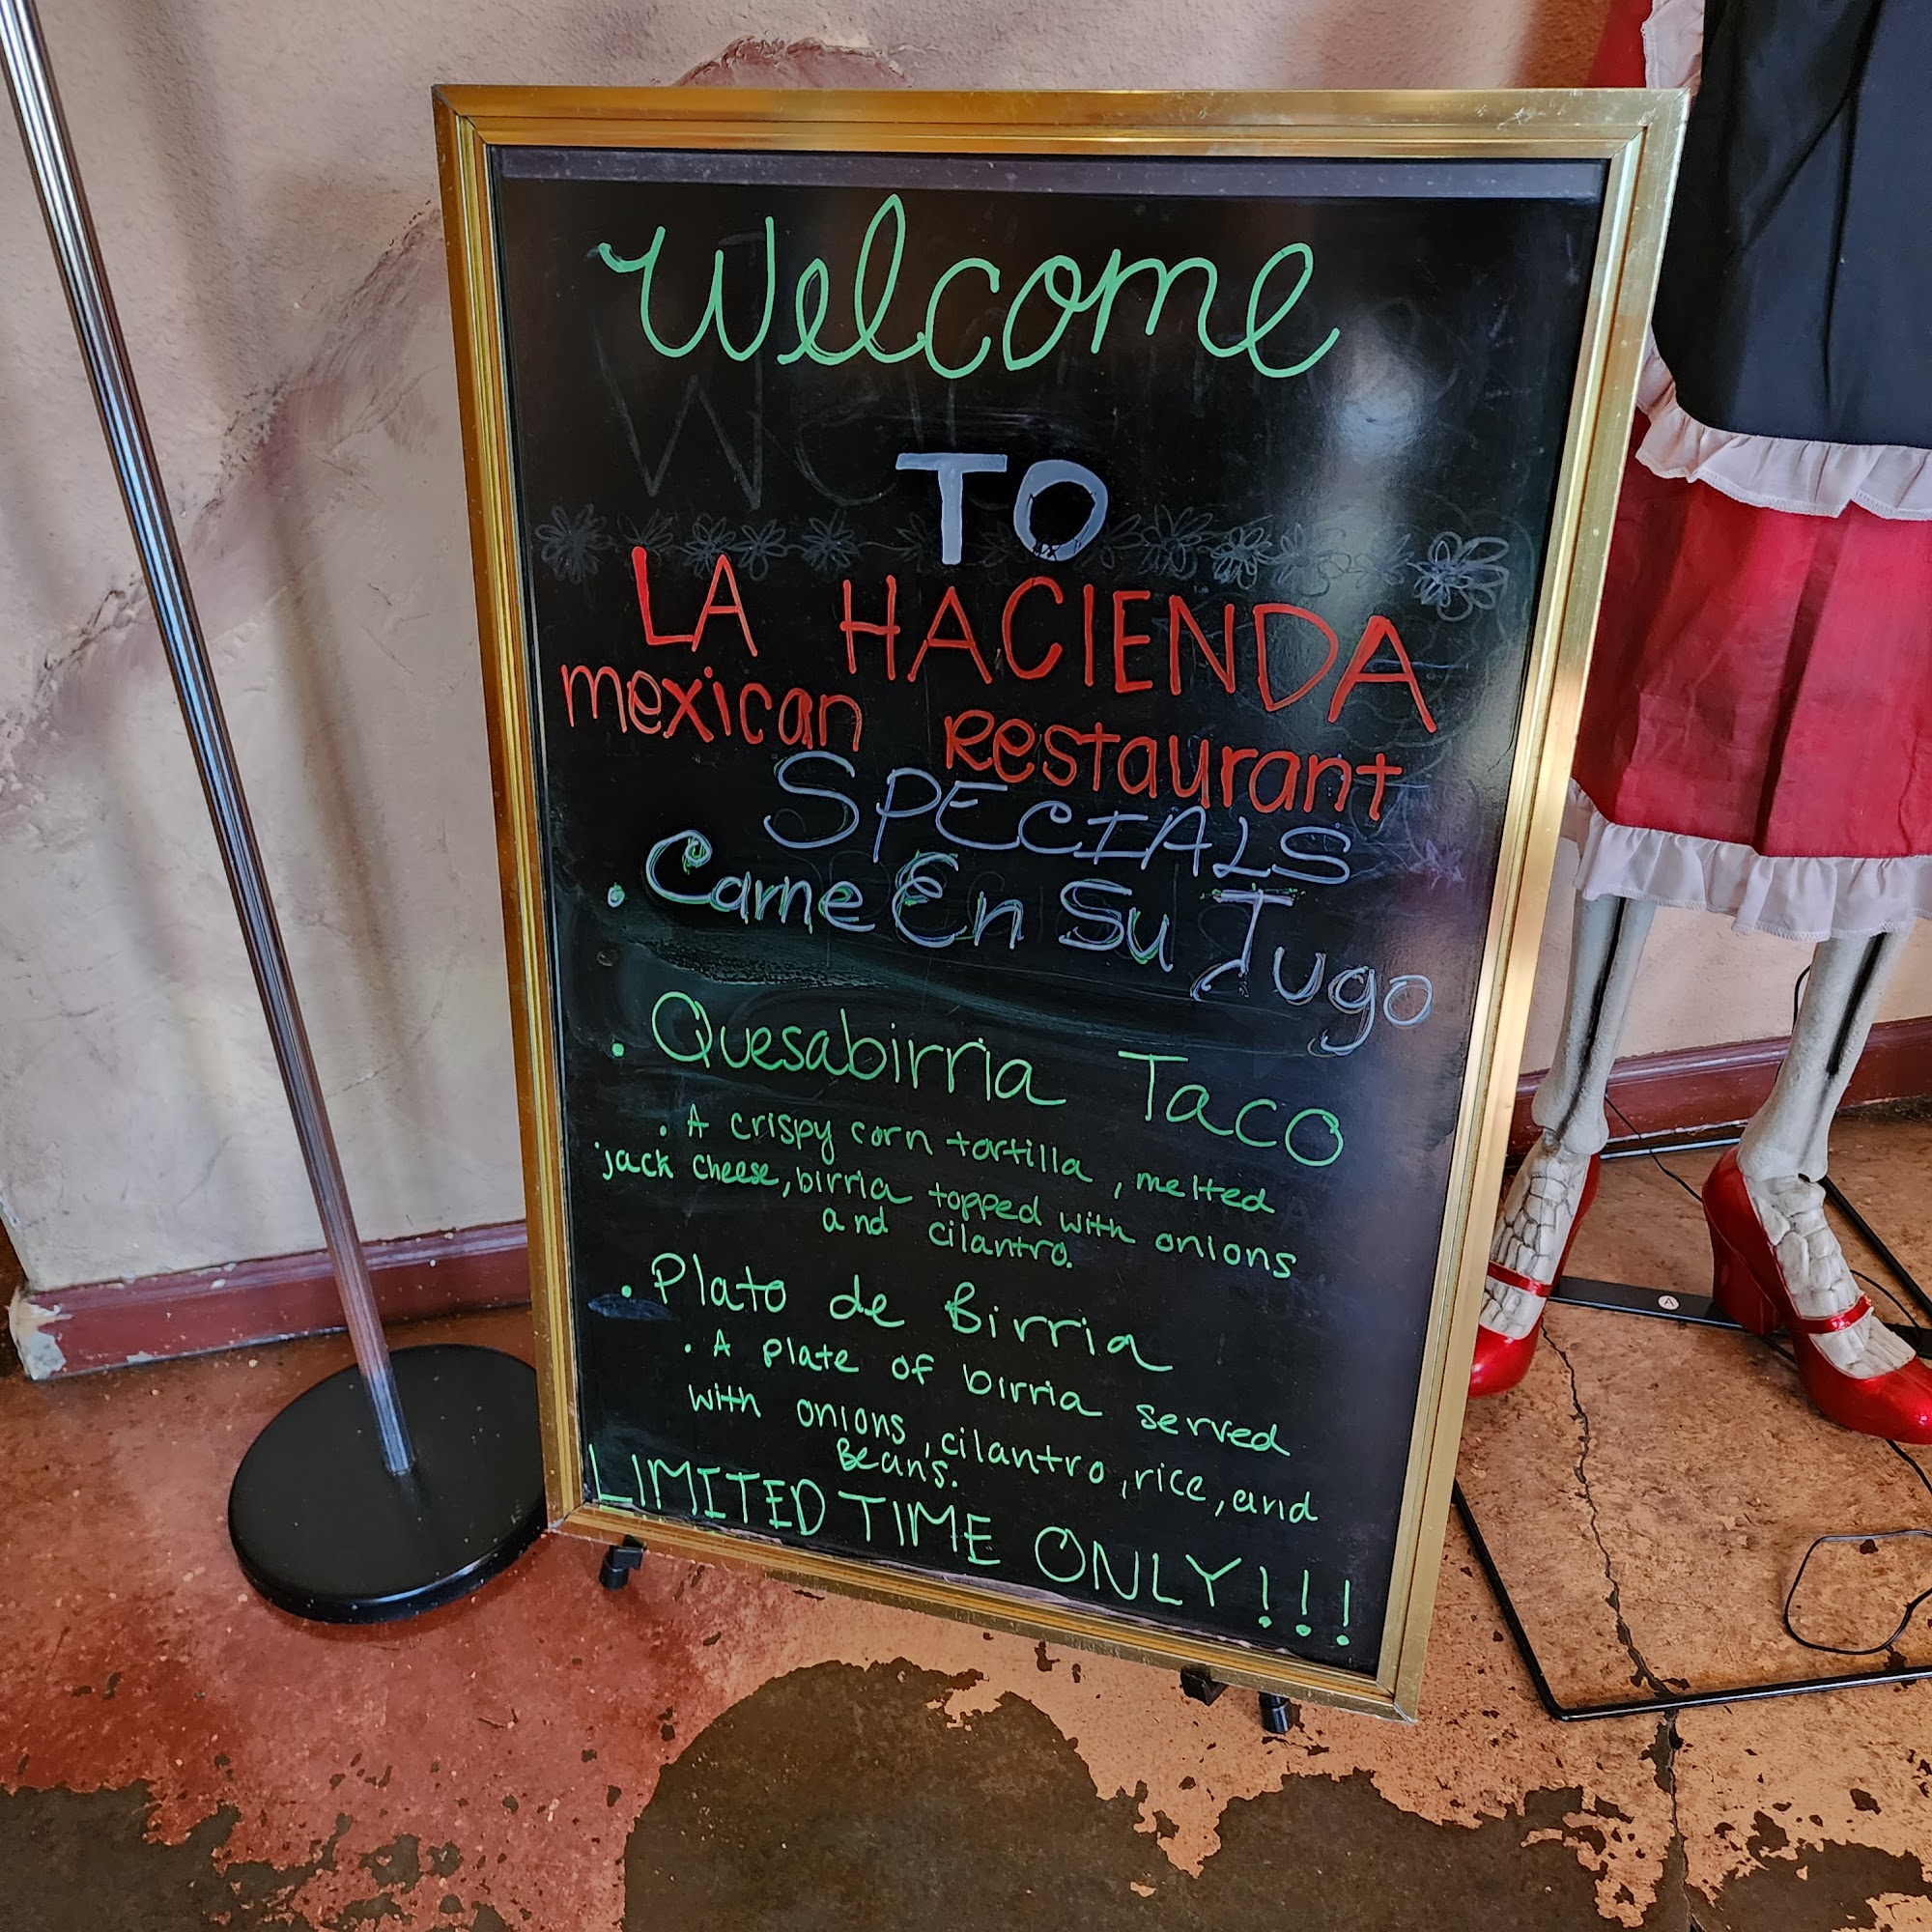 Welcome
TO
LA HACIENDA
mexican Restaurant
SPECIALS
• Carne En Su Jugo
• Quesabirria Taco
• A crispy corn tortilla, melted
jack cheese, birria topped with onions
and cilantro.
• Plato de Birria
• A plate of birria served
with onions, cilantro, rice, and
Beans.
LIMITED TIME ONLY!!!
A